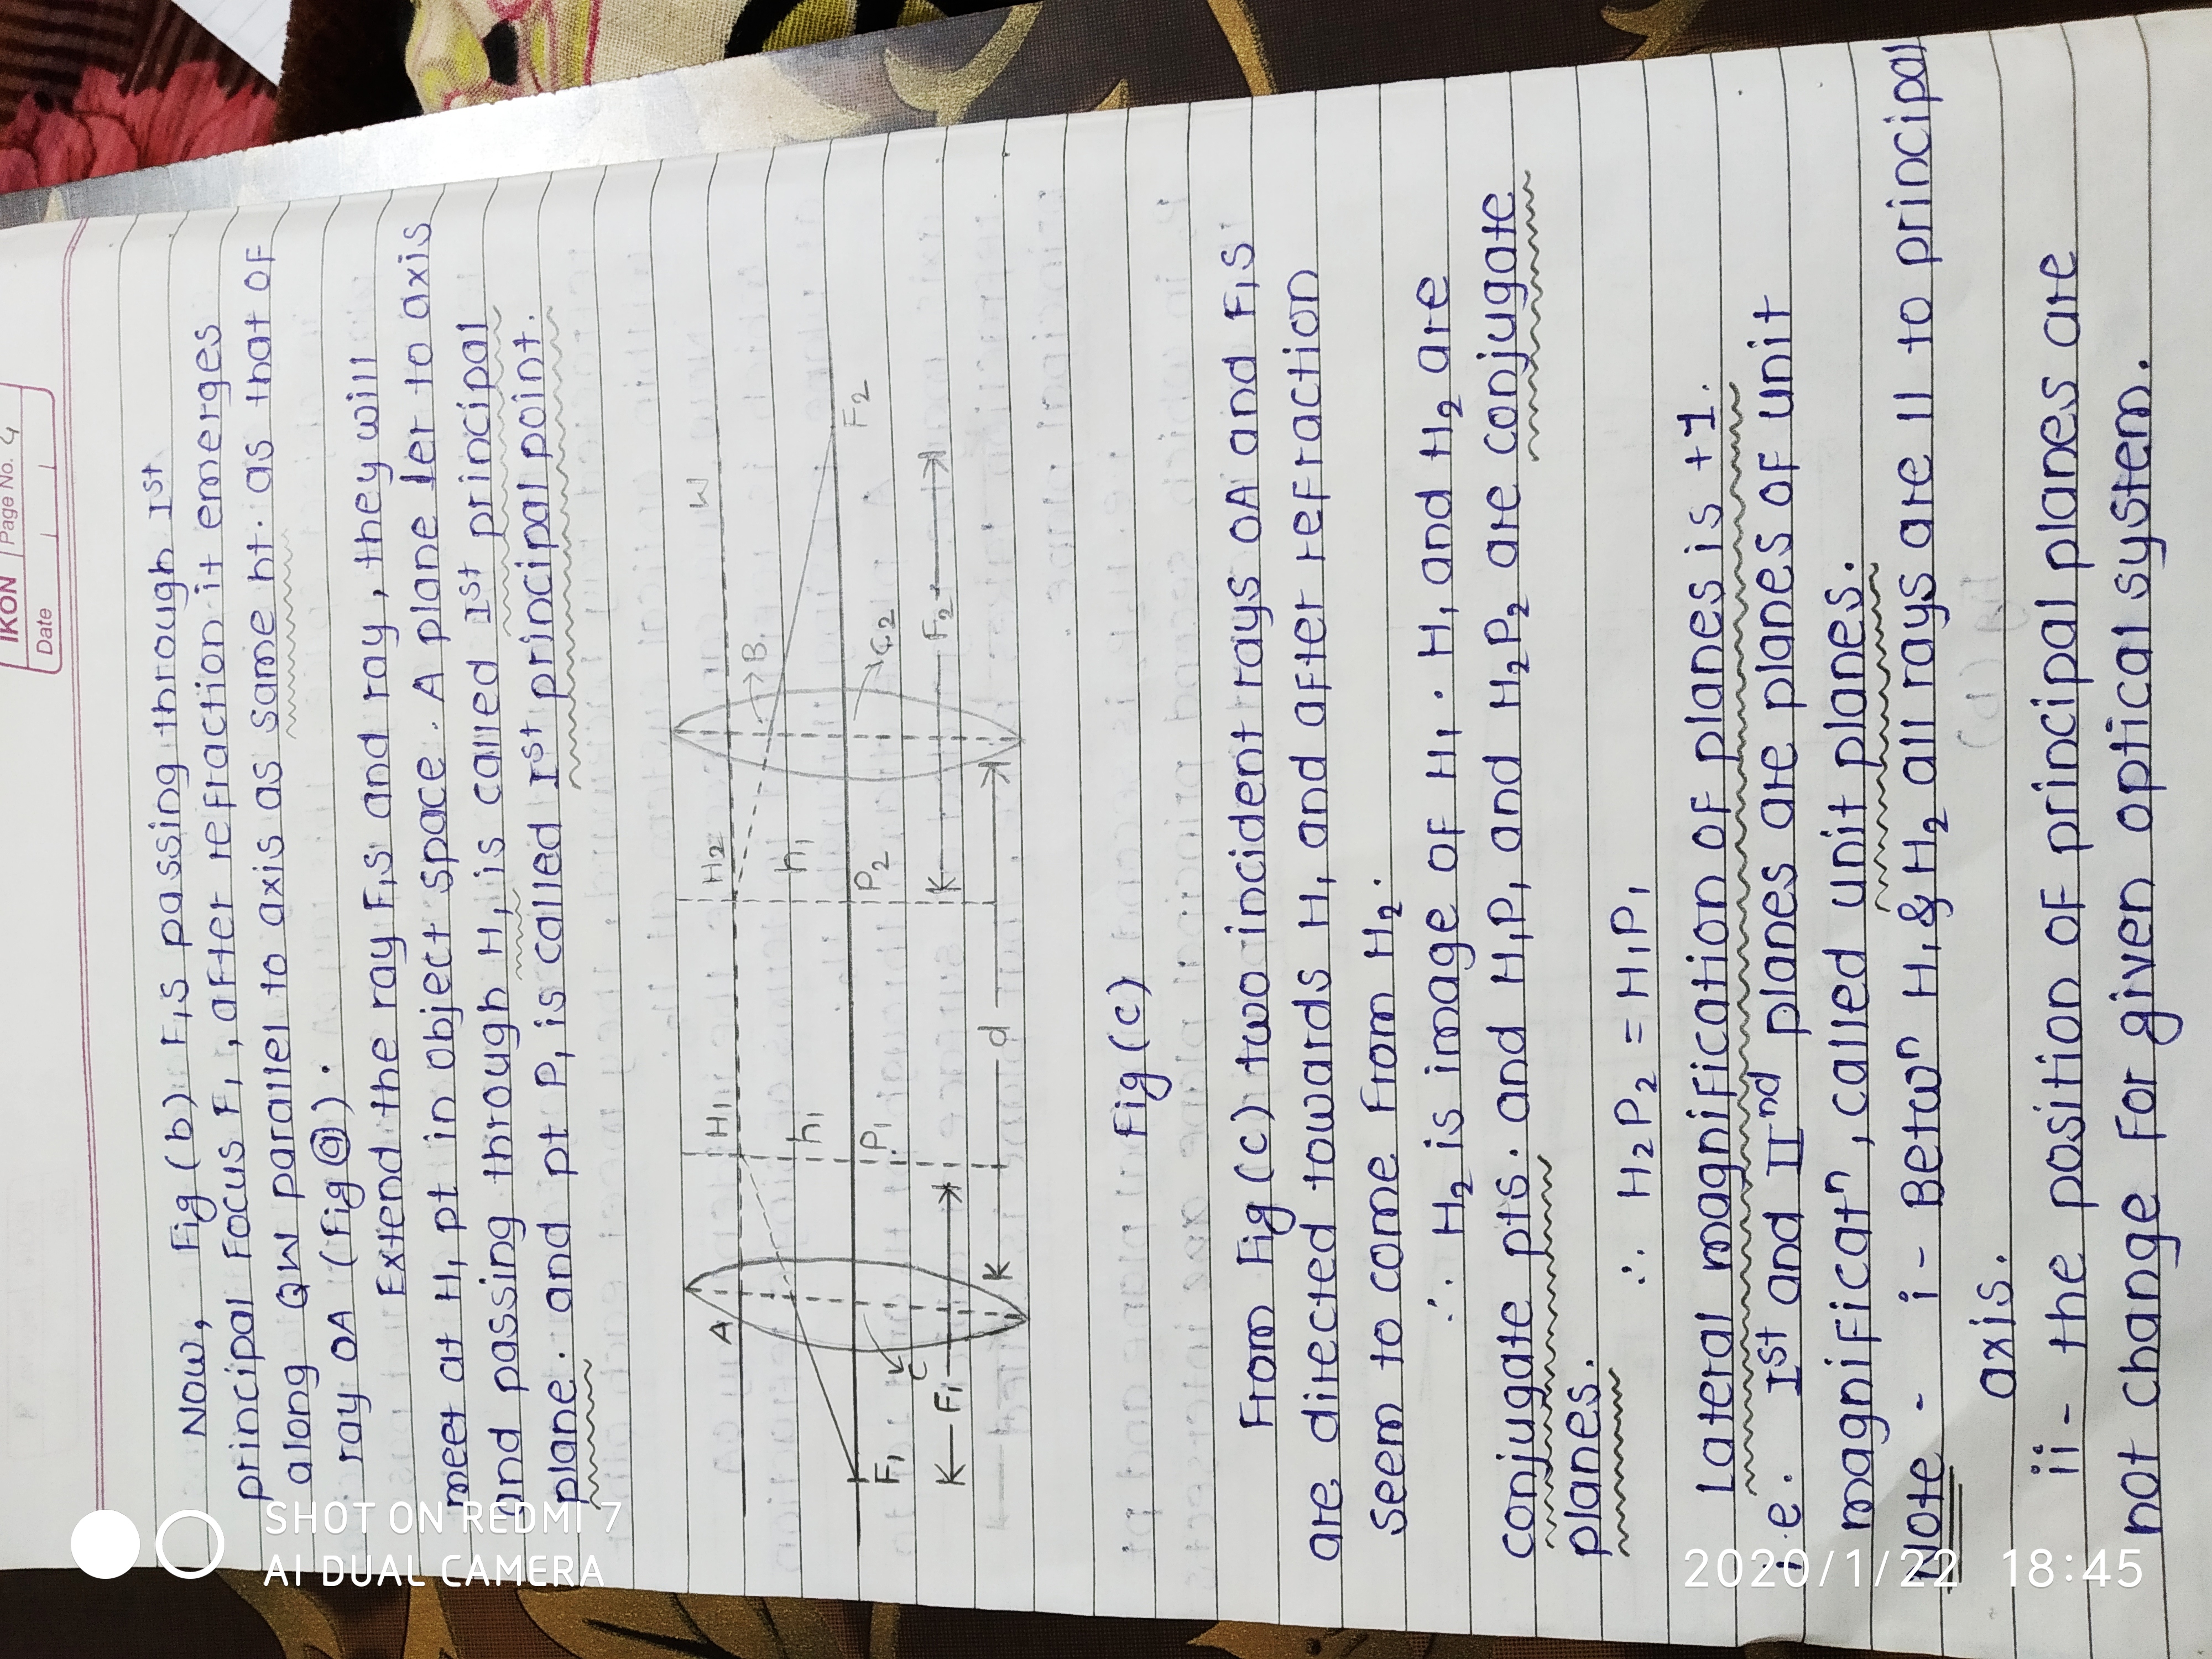 IKON Page No. 4
Date
Now, Fig (b) F₁S passing through Iˢᵗ
principal Focus F₁, after refraction it emerges
along QW parallel to axis as same ht. as that of
ray OA (Fig ⓐ).
Extend the ray F₁S and ray, they will
meet at H₁ pt in object space. A plane ⊥er to axis
and passing through H₁ is called Iˢᵗ principal
plane. and pt P₁ is called Iˢᵗ principal point.
A H₁ H₂ W
B
h₁ h₁
F₁ P₁ P₂ F₂
C C₂
K—F₁ K—F₂
K—d
Fig (c)
From Fig (c) two incident rays OA and F₁S
are directed towards H₁ and after refraction
seem to come from H₂.
∴ H₂ is image of H₁. H₁ and H₂ are
conjugate pts. and H₁P₁ and H₂P₂ are conjugate
planes.
∴ H₂P₂ = H₁P₁
Lateral magnification of planes is +1.
i.e. Iˢᵗ and IIⁿᵈ planes are planes of unit
magnificatⁿ, called unit planes.
Note - i - Betwⁿ H₁ & H₂ all rays are || to principal
axis.
ii - the position of principal planes are
not change for given optical system.
SHOT ON REDMI 7
AI DUAL CAMERA
2020/1/22 18:45